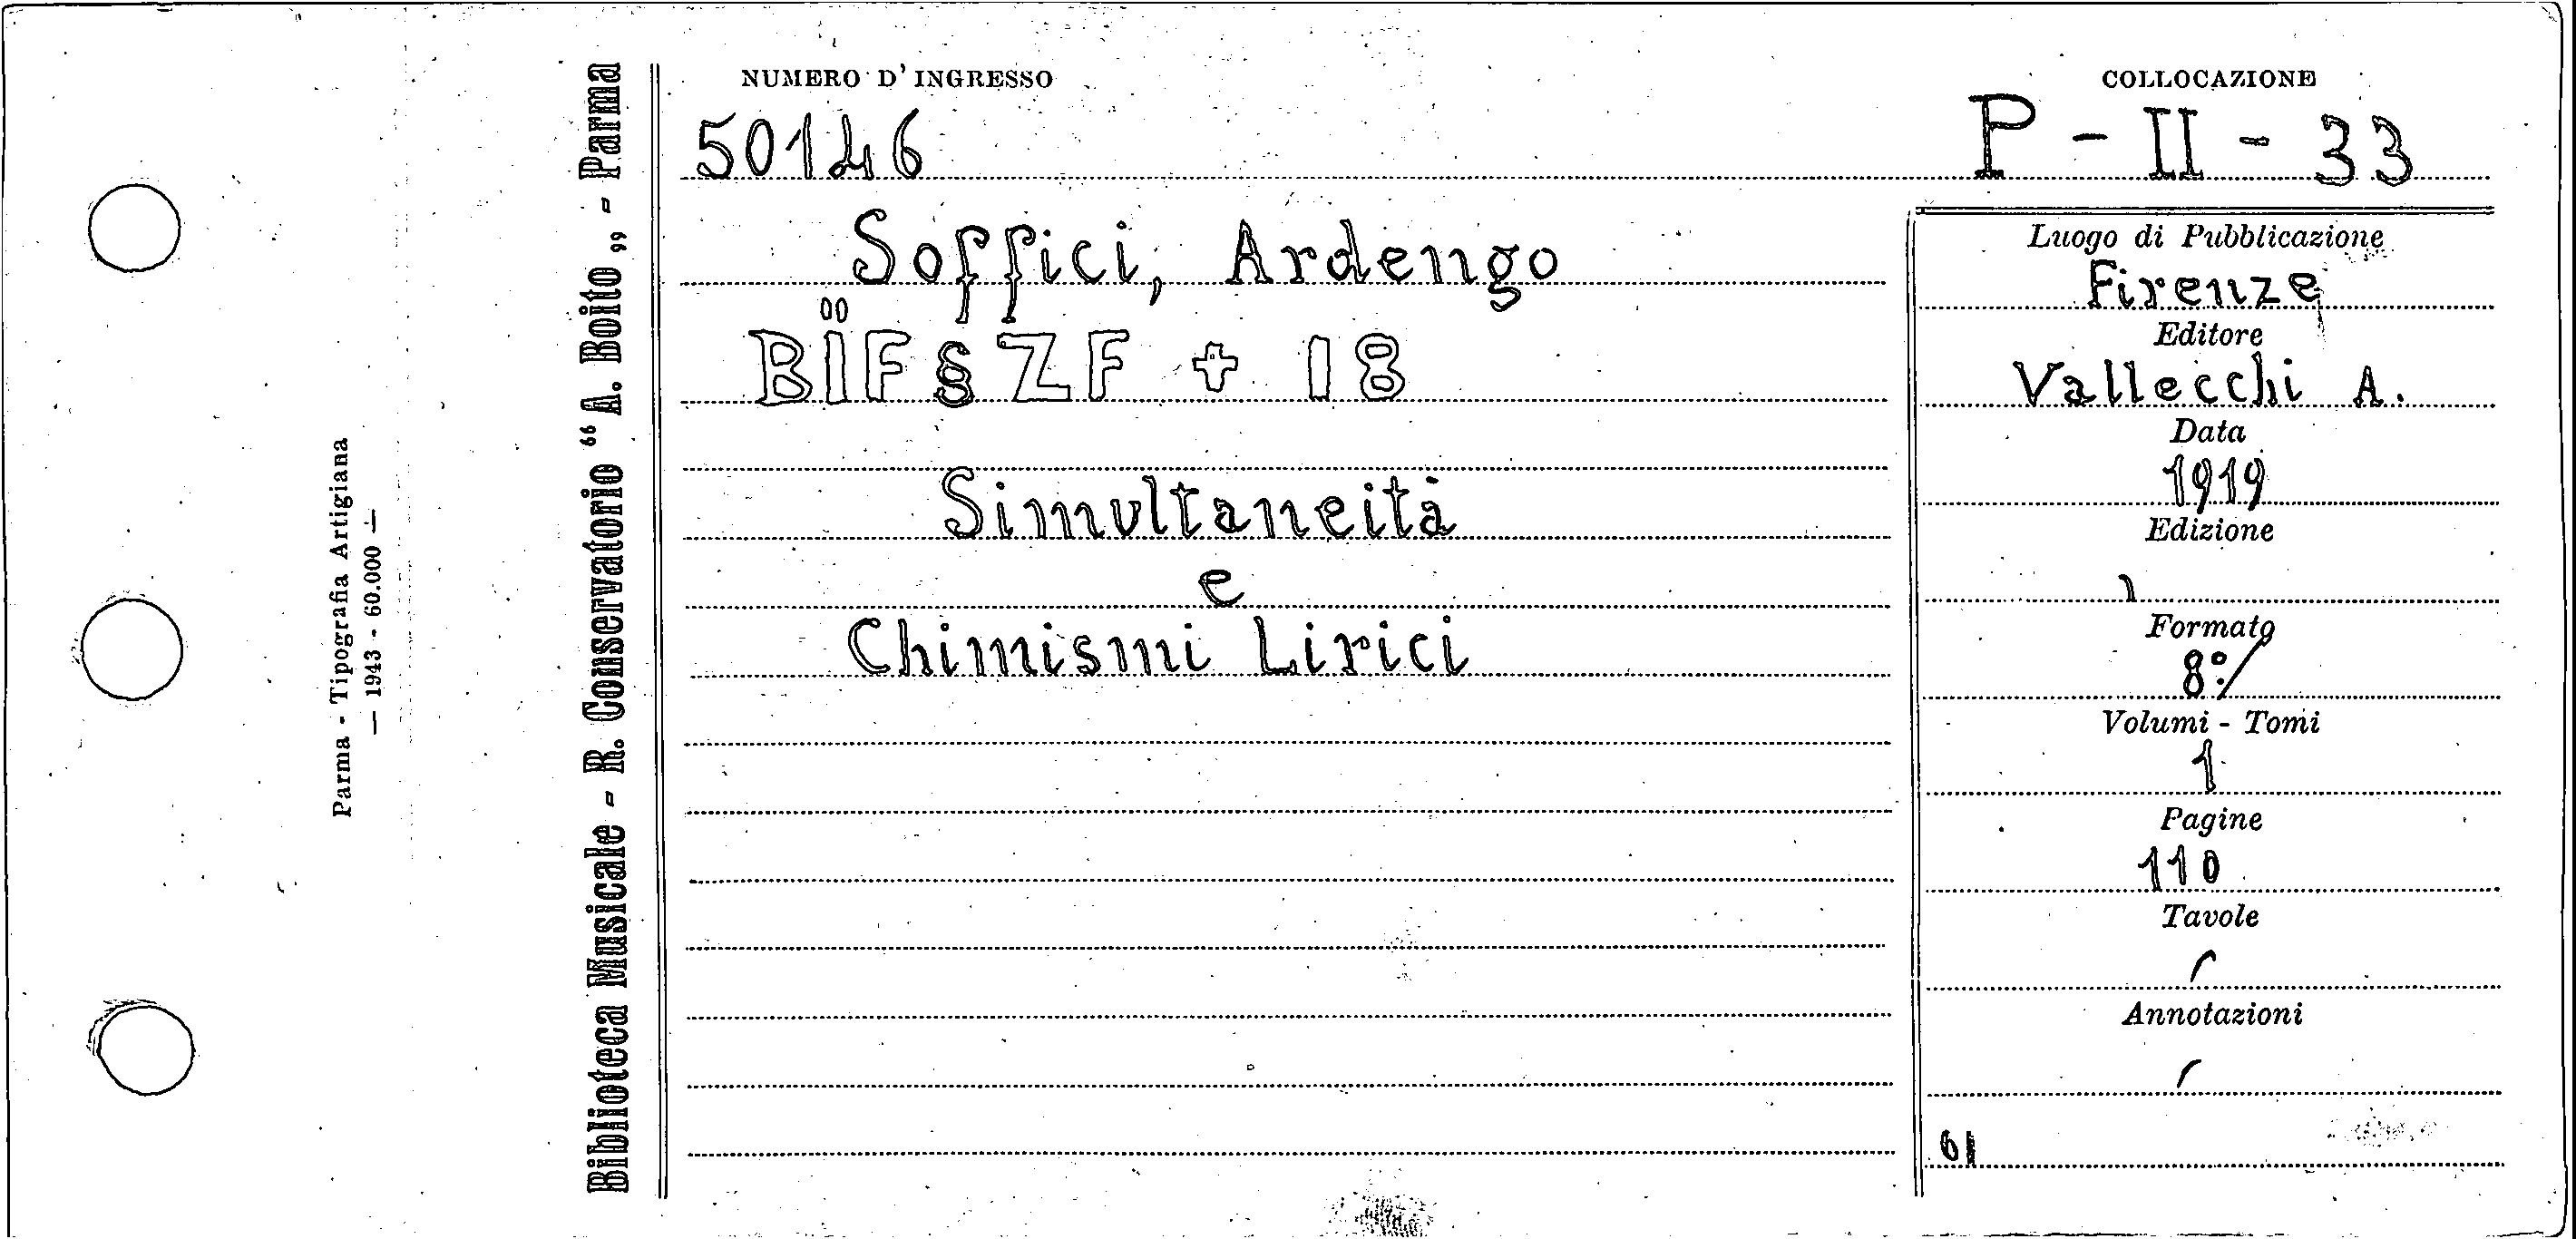 Parma - Tipografia Artigiana
— 1943 - 60.000 —
Biblioteca Musicale - R. Conservatorio “A. Boito„ - Parma
NUMERO D'INGRESSO
50146
COLLOCAZIONE
P - II - 33
Soffici, Ardengo
BÏF§ZF + 18
Simultaneità
e
Chimismi Lirici
Luogo di Pubblicazione
Firenze
Editore
Vallecchi A.
Data
1919
Edizione
Formato
8º
Volumi - Tomi
1
Pagine
110
Tavole
Annotazioni
61